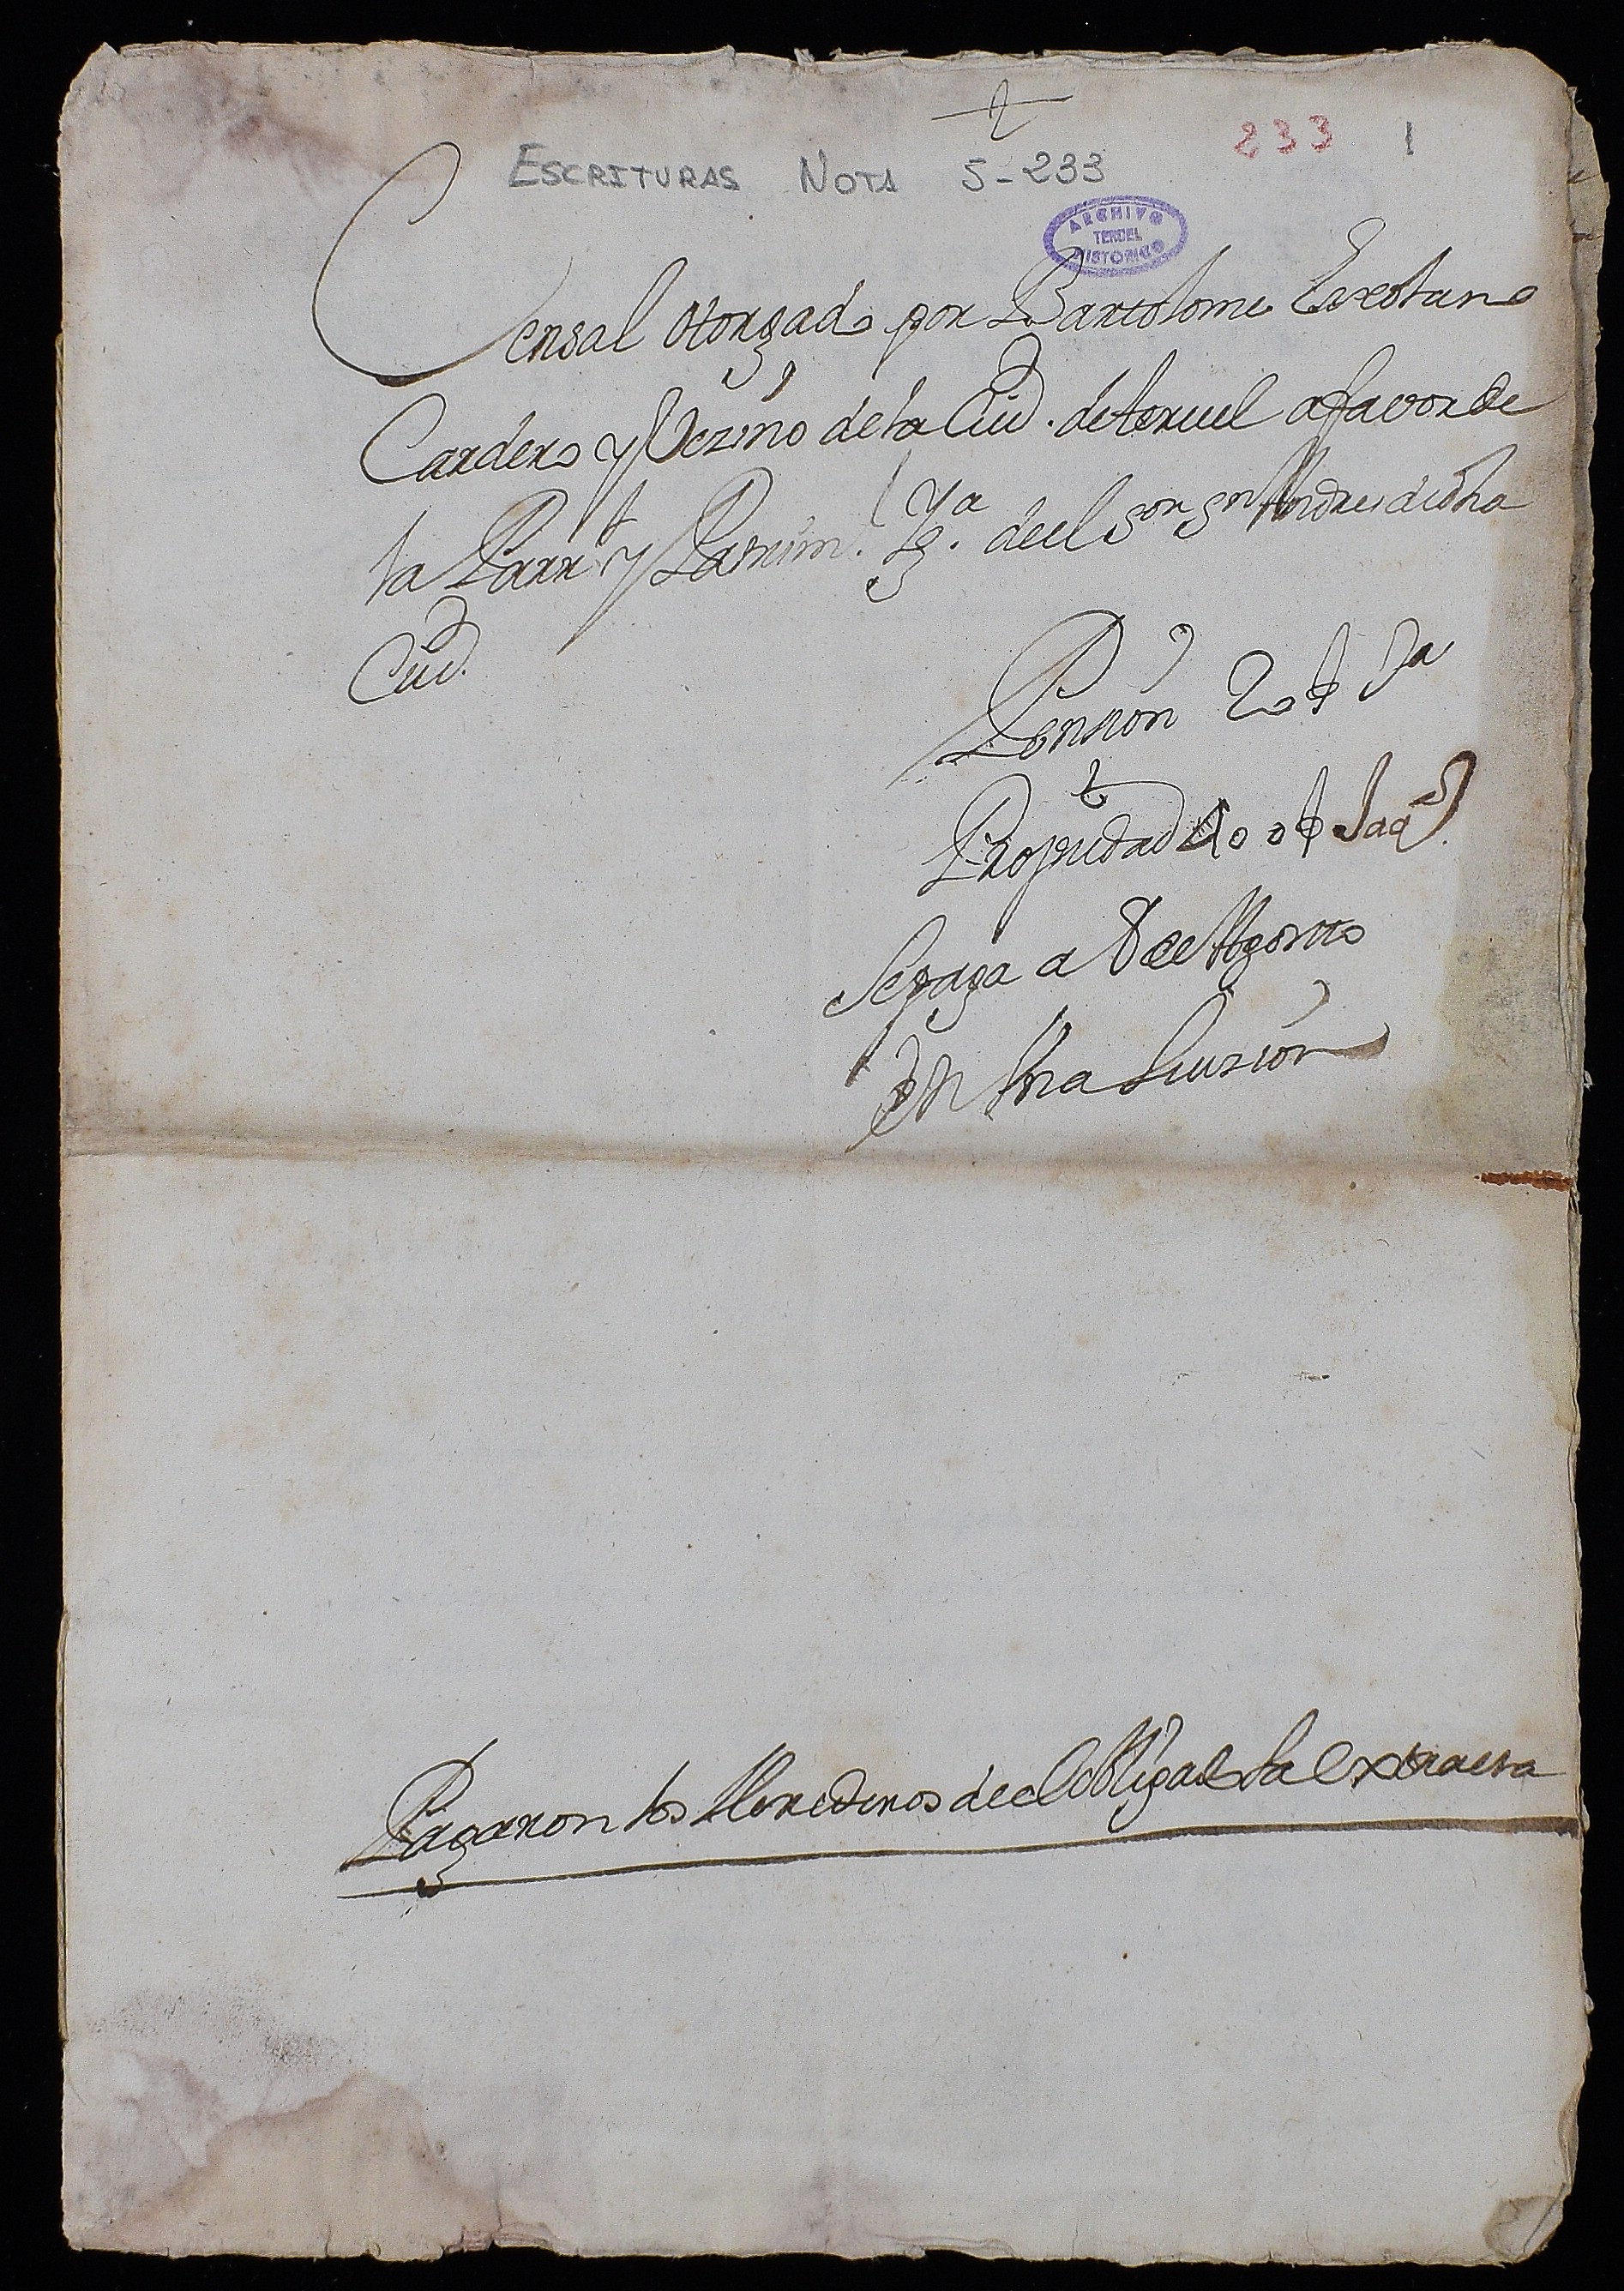 233 1
ESCRITURAS NOTA 5-233
ARCHIVO
TERUEL
HISTORICO
Censal otorgado por Bartolome
Cardero y Vezino de la Ciud. de teruel a favor de
la Parr.t y Patrim.l Yg.a de el Sor Sn Andres de dha
Ciud.
Pension 20 Ja
Propiedad 400 Jaq.s
Se paga a 8 de Agosto
En Una Luizion
Pagaron los Herederos de el obligado la extracta